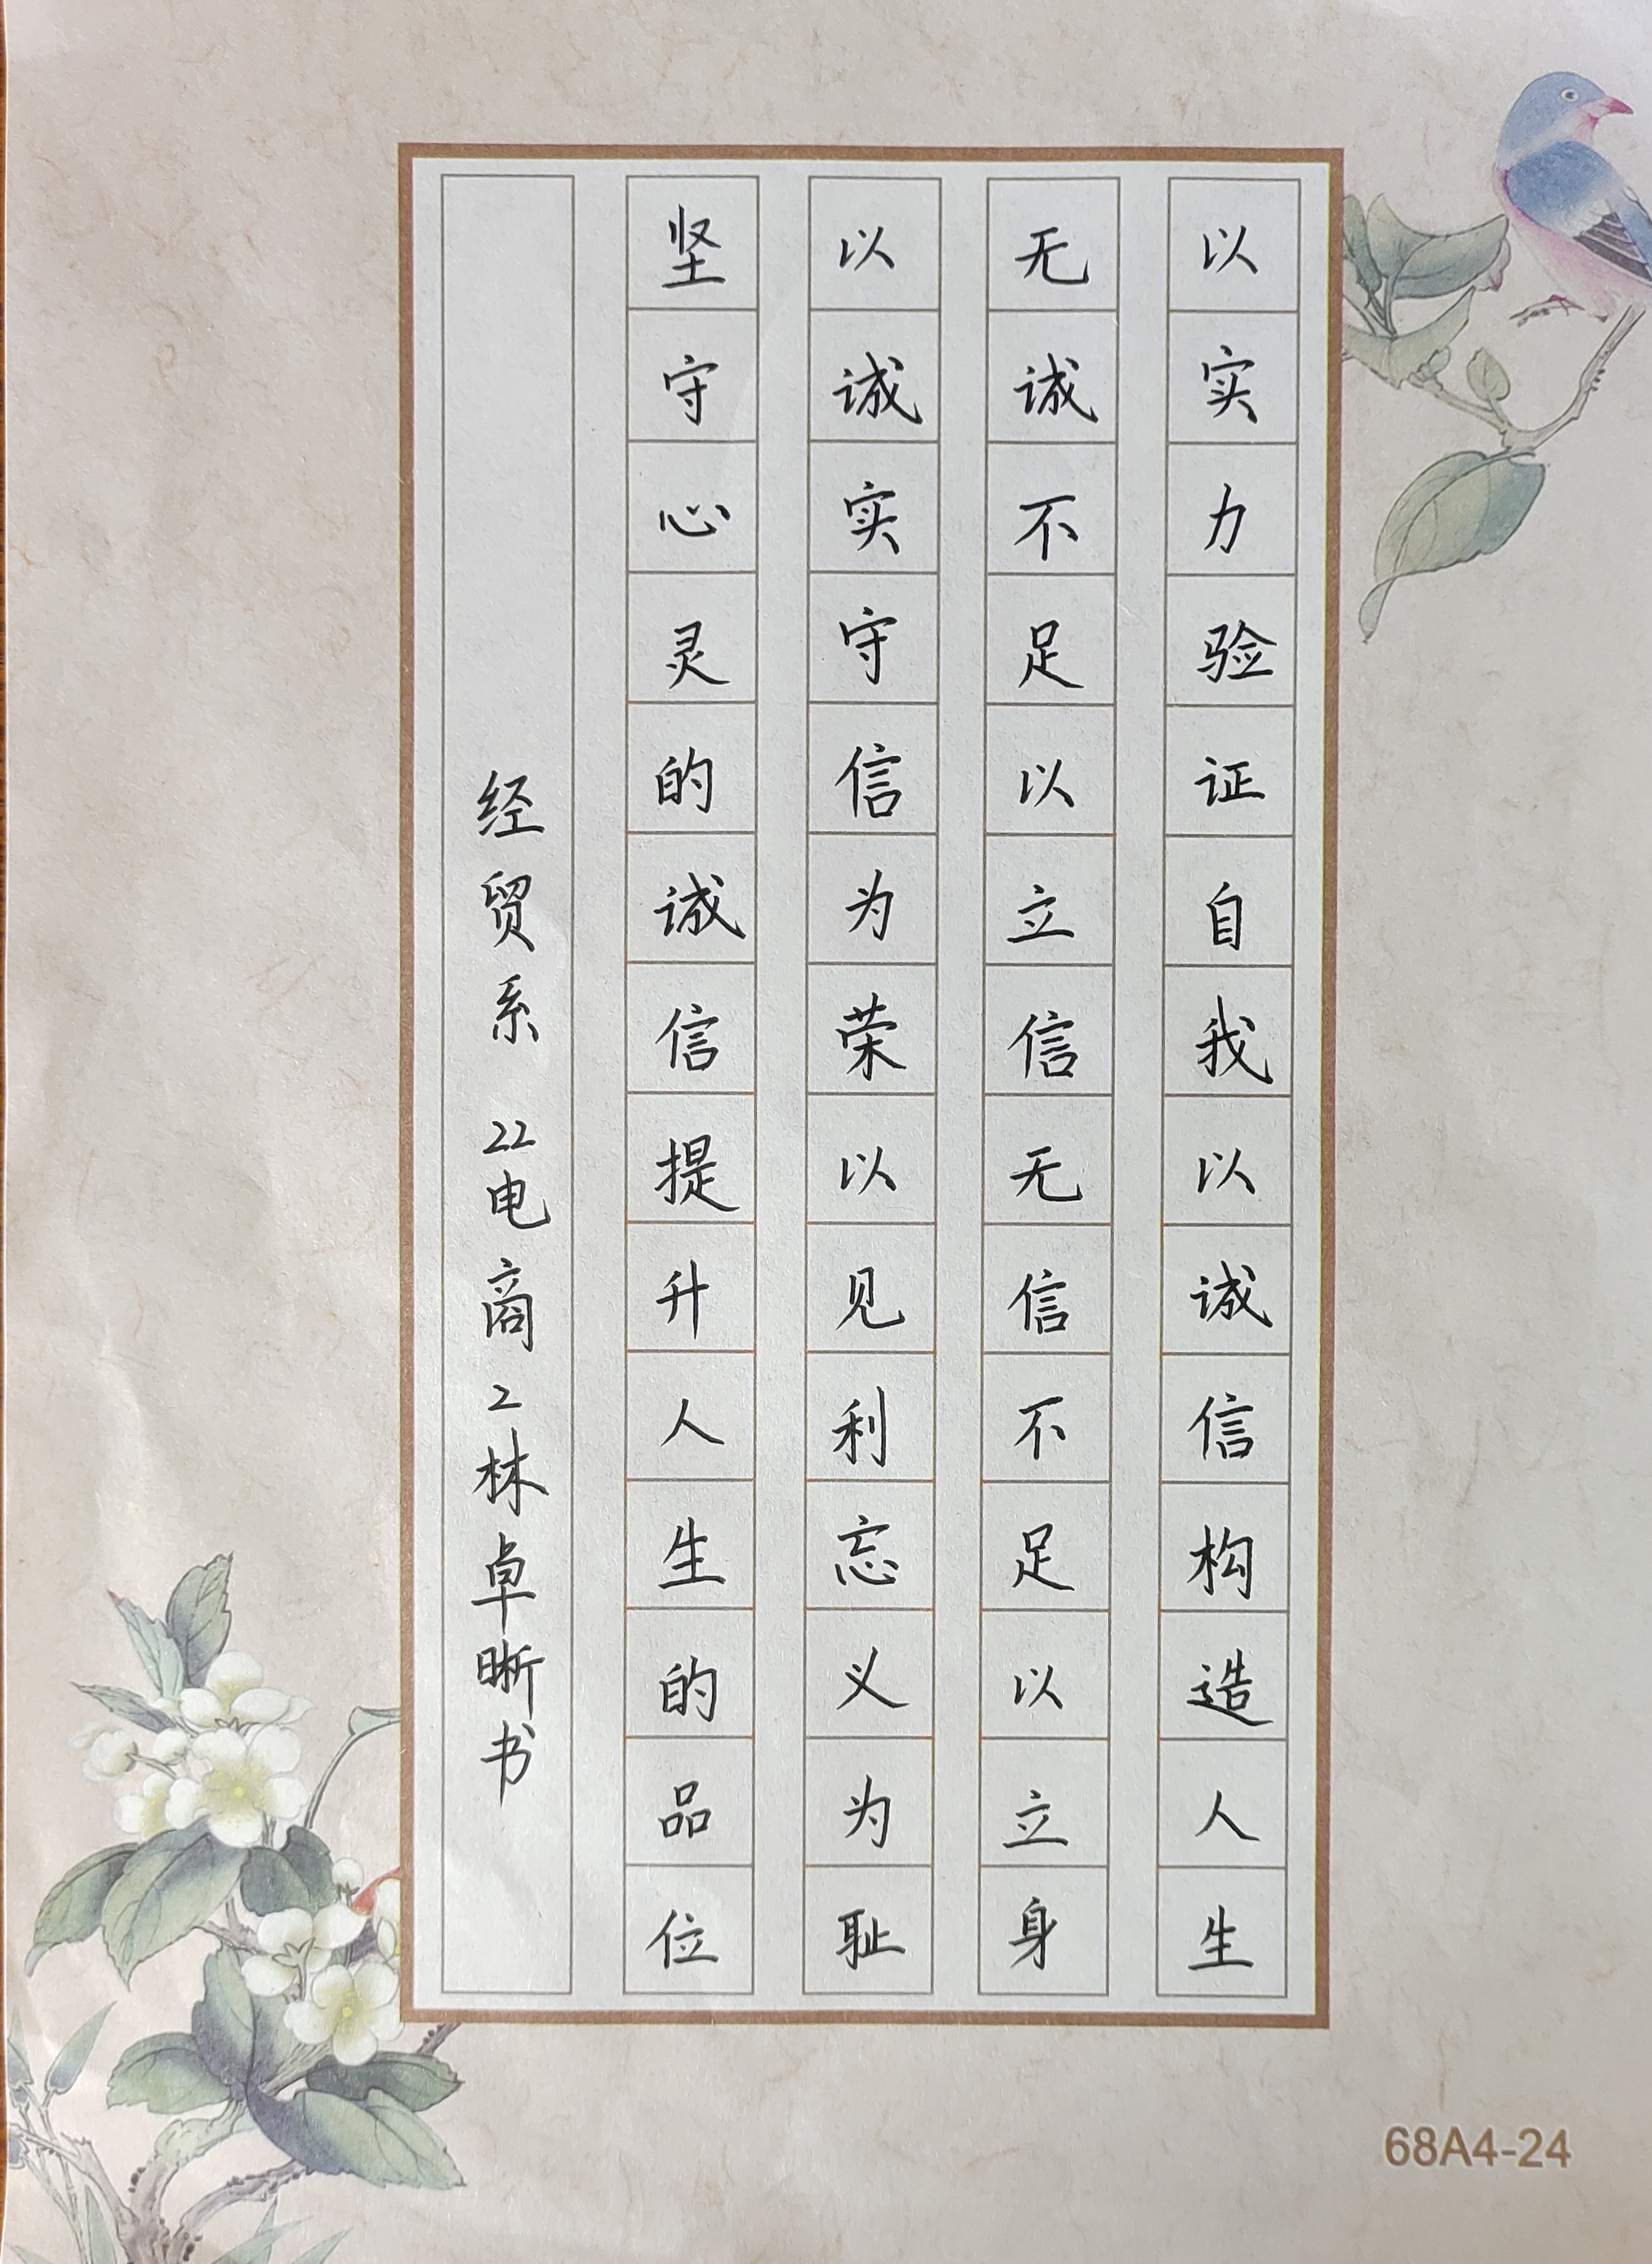 以实力验证自我以诚信构造人生
无诚不足以立信无信不足以立身
以诚实守信为荣以见利忘义为耻
坚守心灵的诚信提升人生的品位
经贸系 22电商2林卓晰书
68A4-24